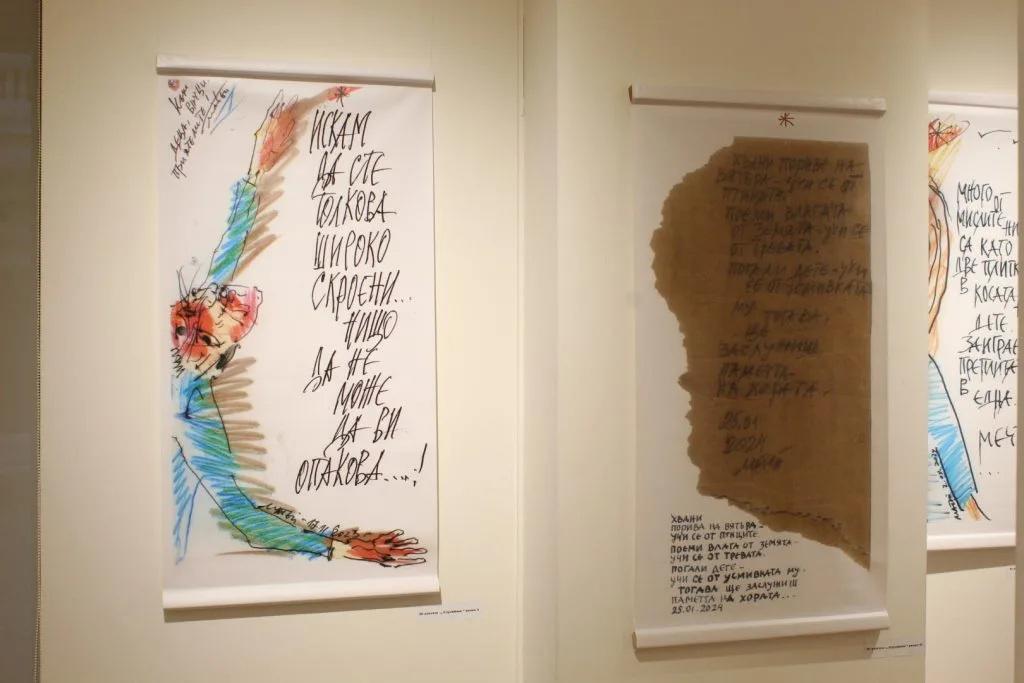 Като
деца, внуци,
приятелите!
ИСКАМ
ДА СТЕ
ТОЛКОВА
ШИРОКО
СКРОЕНИ...
НИЩО
ДА НЕ
МОЖЕ
ДА ВИ
ОПАКОВА....!
ХВАНИ ПОРИВА НА
ВЯТЪРА - УЧИ СЕ ОТ
ПТИЦИТЕ.
ПОЕМИ ВЛАГАТА
ОТ ЗЕМЯТА - УЧИ СЕ
ОТ ТРЕВАТА.
ПОГАЛИ ДЕТЕ - УЧИ
СЕ ОТ УСМИВКАТА
МУ. ТОГАВА,
ЩЕ
ЗАСЛУЖИШ
ПАМЕТТА
НА ХОРАТА.
25.01
2024
ХВАНИ
ПОРИВА НА ВЯТЪРА -
УЧИ СЕ ОТ ПТИЦИТЕ.
ПОЕМИ ВЛАГА ОТ ЗЕМЯТА -
УЧИ СЕ ОТ ТРЕВАТА.
ПОГАЛИ ДЕТЕ -
УЧИ СЕ ОТ УСМИВКАТА МУ.
ТОГАВА ЩЕ ЗАСЛУЖИШ
ПАМЕТТА НА ХОРАТА...
25.01.2024
МНОГО ОТ
МИСЛИТЕ НИ
СА КАТО
ДВЕ ПЛИТК
В
КОСАТА
ДЕТЕ.
ЗАИГРАЕ
ПРЕПЛИТА
В
ЕДНА.
МЕЧ
...